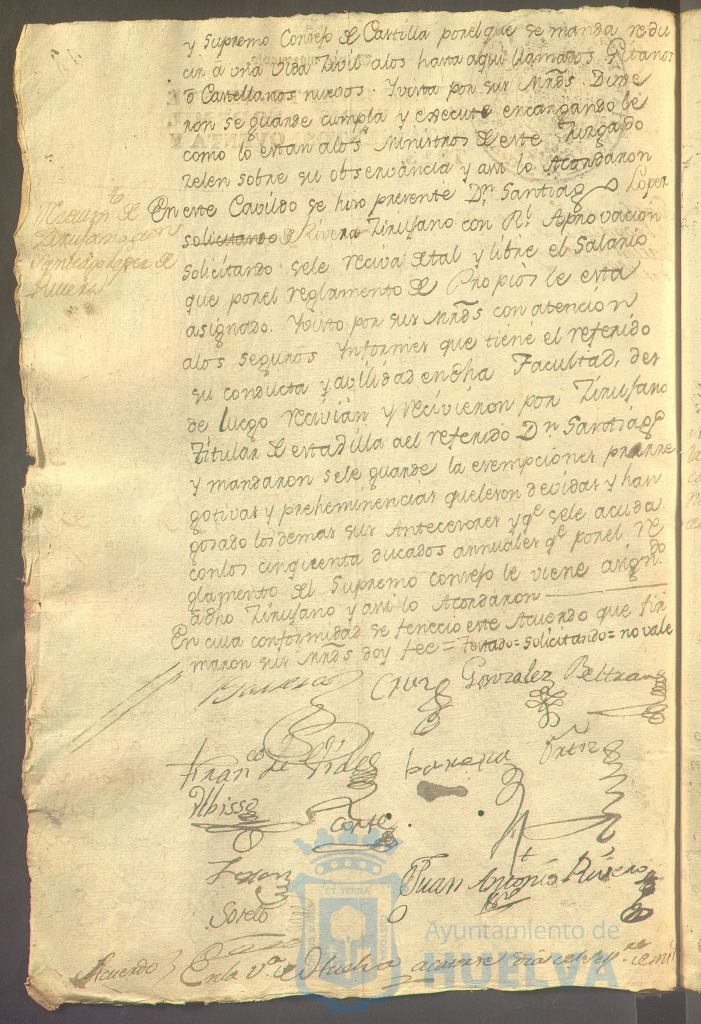 y Supremo Consejo de Castilla por el que se manda redu
cir â una vida Zivil alos hasta aqui llamados Gitanos
ô Castellanos nuevos. Y vista por sus Mrds. Dixe
ron se guarde cumpla y execute encargandole
como lo estan alos Ministros de este Juzgado
zelen sobre su observancia y assi lo Acordaron
En este Cavildo se hizo presente Dn. Santiago Lopez
solicitando de Rivera Zirujano con Rl. Aprovacion
Solicitando sele reciva de tal y libre el Salario
que por el reglamento de Propios le esta
asignado. Y visto por sus Mrds con atencion
alos seguros Informes que tiene el referido
su conducta y avilidad en dha Facultad, des
de luego recivian y recivieron por Zirujano
Titular de esta Villa ael referido Dn Santiago
y mandaron sele guarde la exempciones prerre
gotivas y preheminencias que le son devidas y han
gosado los demas sus Antecesores y qe. sele acuda
con los cinquenta ducados annuales qe. por el re
glamento del Supremo consejo le viene asigndo.
a dho Zirujano y assi lo Acordaron
En cuia conformidad se fenecio este Acuerdo que fir
maron sus Mrds doy fee = Testado = solicitando = no vale
Recivimto. de
Zirujano a Dn
Santiago Lopez de
Rivera
Barrera Cruz Gonzalez Beltran
Franco. de Fides barrera Ortiz
Albisso
Corte
Zeron
Juan Antonio Rivero
Sotelo
ET TERRÆ
Ayuntamiento de
HUELVA
Acuerdo En la Va. de Huelva a catorse dias del